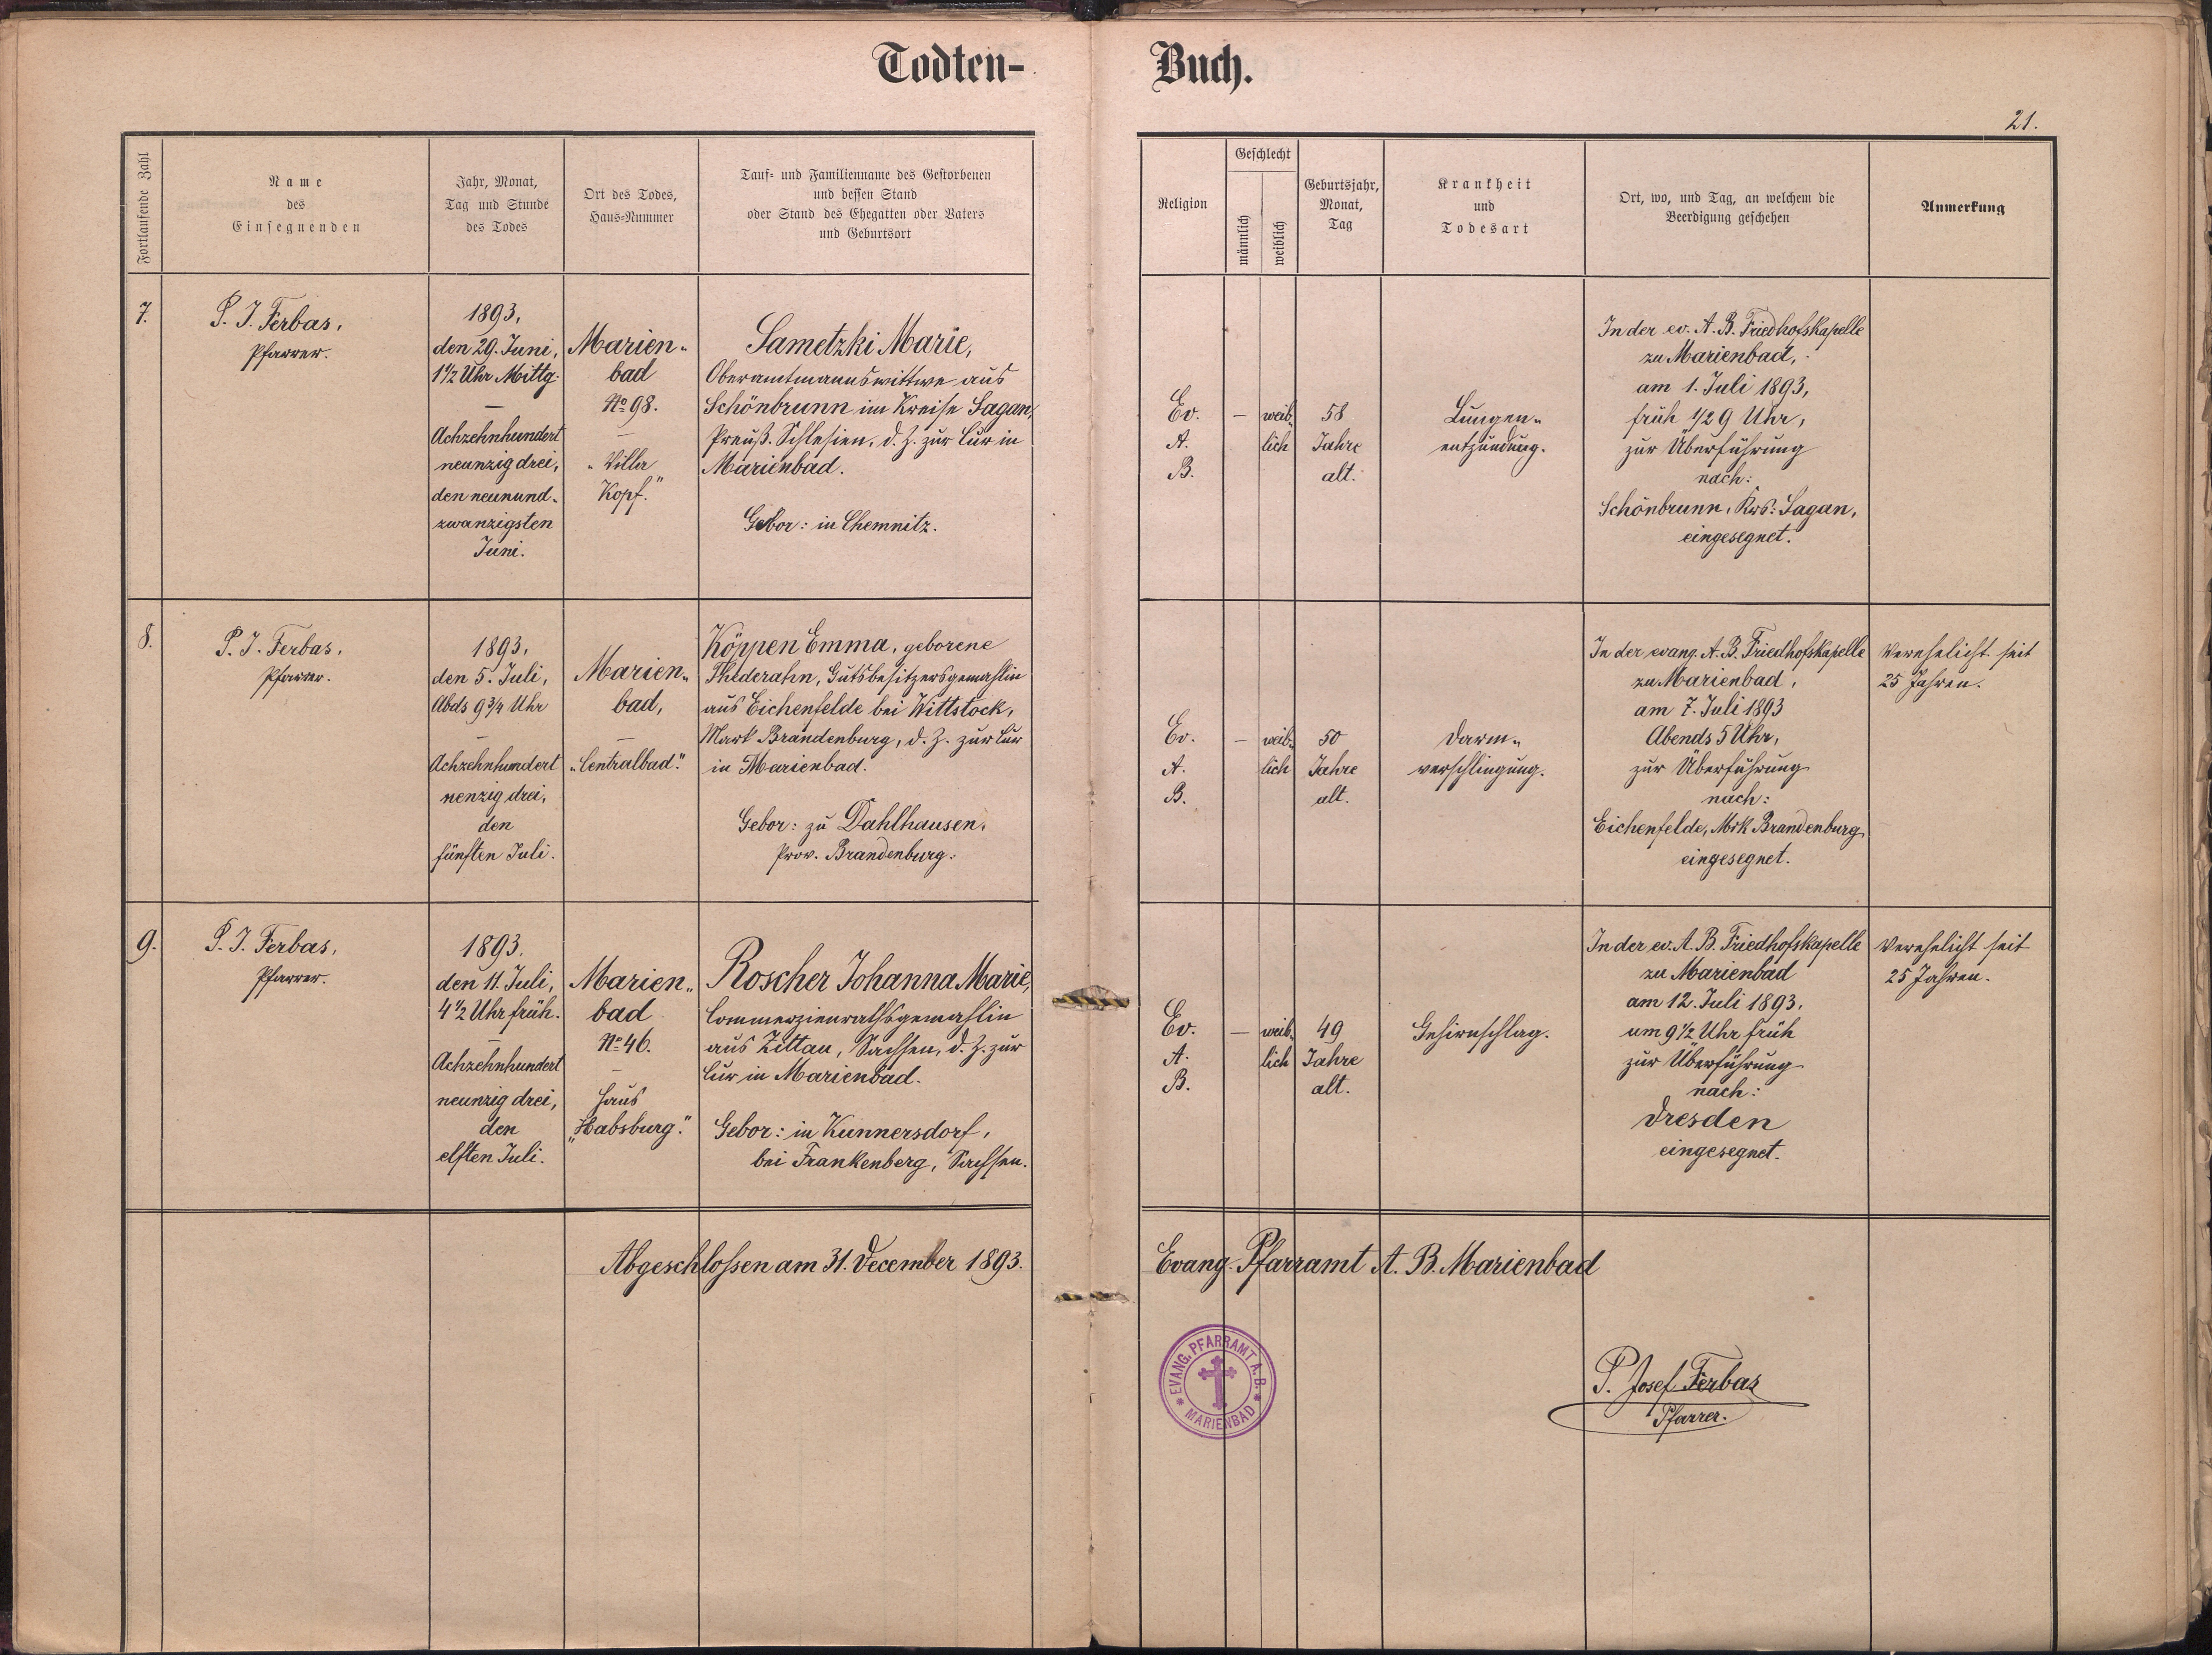 Todten-
Buch.
21.
Fortlaufende Zahl
Name
des
Einsegnenden
Jahr, Monat,
Tag und Stunde
des Todes
Ort des Todes,
Haus-Nummer
Tauf- und Familienname des Gestorbenen
und dessen Stand
oder Stand des Ehegatten oder Vaters
und Geburtsort
Religion
Geschlecht
männlich
weiblich
Geburtsjahr,
Monat,
Tag
Krankheit
und
Todesart
Ort, wo, und Tag, an welchem die
Beerdigung geschehen
Anmerkung
7.
P. J. Ferbas,
Pfarrer.
1893,
den 29. Juni,
1 1/2 Uhr Mittg.
—
Achzehnhundert
neunzig drei,
den neunund-
zwanzigsten
Juni.
Marien-
bad
No 98.
—
"Villa
Kopf."
Sametzki Marie,
Oberamtmannswittwe aus
Schönbrunn im Kreise Sagan,
Preuß. Schlesien, d. Z. zur Cur in
Marienbad.
Gebor: in Chemnitz.
Ev.
A.
B.
—
weib-
lich
58
Jahre
alt.
Lungen-
entzündung.
In der ev. A. B. Friedhofskapelle
zu Marienbad,
am 1. Juli 1893,
früh 1/2 9 Uhr,
zur Überführung
nach:
Schönbrunn, Krs: Sagan,
eingesegnet.
8.
P. J. Ferbas,
Pfarrer.
1893,
den 5. Juli,
Abds 9 3/4 Uhr
—
Achzehnhundert
nenzig drei,
den
fünften Juli.
Marien-
bad,
—
"Centralbad."
Köppen Emma, geborene
Thederahn, Gutsbesitzersgemahlin
aus Eichenfelde bei Wittstock,
Mark Brandenburg, d. Z. zur Cur
in Marienbad.
Gebor: zu Dahlhausen,
Prov. Brandenburg.
Ev.
A.
B.
—
weib-
lich
50
Jahre
alt.
Darm-
verschlingung.
In der evang. A. B. Friedhofskapelle
zu Marienbad,
am 7. Juli 1893
Abends 5 Uhr,
zur Überführung
nach:
Eichenfelde, Mrk Brandenburg
eingesegnet.
Verehelicht seit
25 Jahren.
9.
P. J. Ferbas,
Pfarrer.
1893.
den 11. Juli,
4 1/2 Uhr früh.
—
Achzehnhundert
neunzig drei,
den
elften Juli.
Marien-
bad
No 46.
—
Haus
"Habsburg."
Roscher Johanna Marie,
Commerzienrathsgemahlin
aus Zittau, Sachsen, d. Z. zur
Cur in Marienbad.
Gebor: in Kunnersdorf,
bei Frankenberg, Sachsen.
Ev.
A.
B.
—
weib-
lich
49
Jahre
alt.
Gehirnschlag.
In der ev. A. B. Friedhofskapelle
zu Marienbad
am 12. Juli 1893.
um 9 1/2 Uhr früh
zur Überführung
nach:
Dresden
eingesegnet.
Verehelicht seit
25 Jahren.
Abgeschlossen am 31. December 1893.
Evang. Pfarramt A. B. Marienbad
EVANG. PFARRAMT A. B.
* MARIENBAD *
P. Josef Ferbas
Pfarrer.